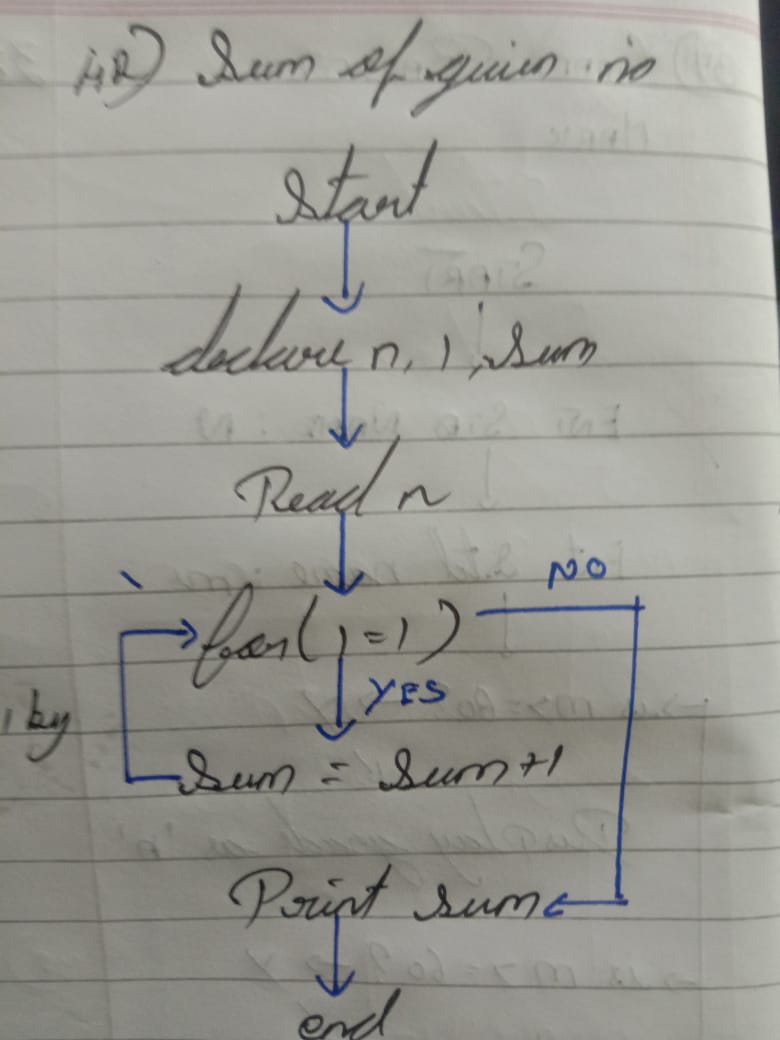 Sum of given no
Start
declare n, i, sum
Read n
NO
for(i=1)
YES
, by
Sum = Sum+1
Print sum
end